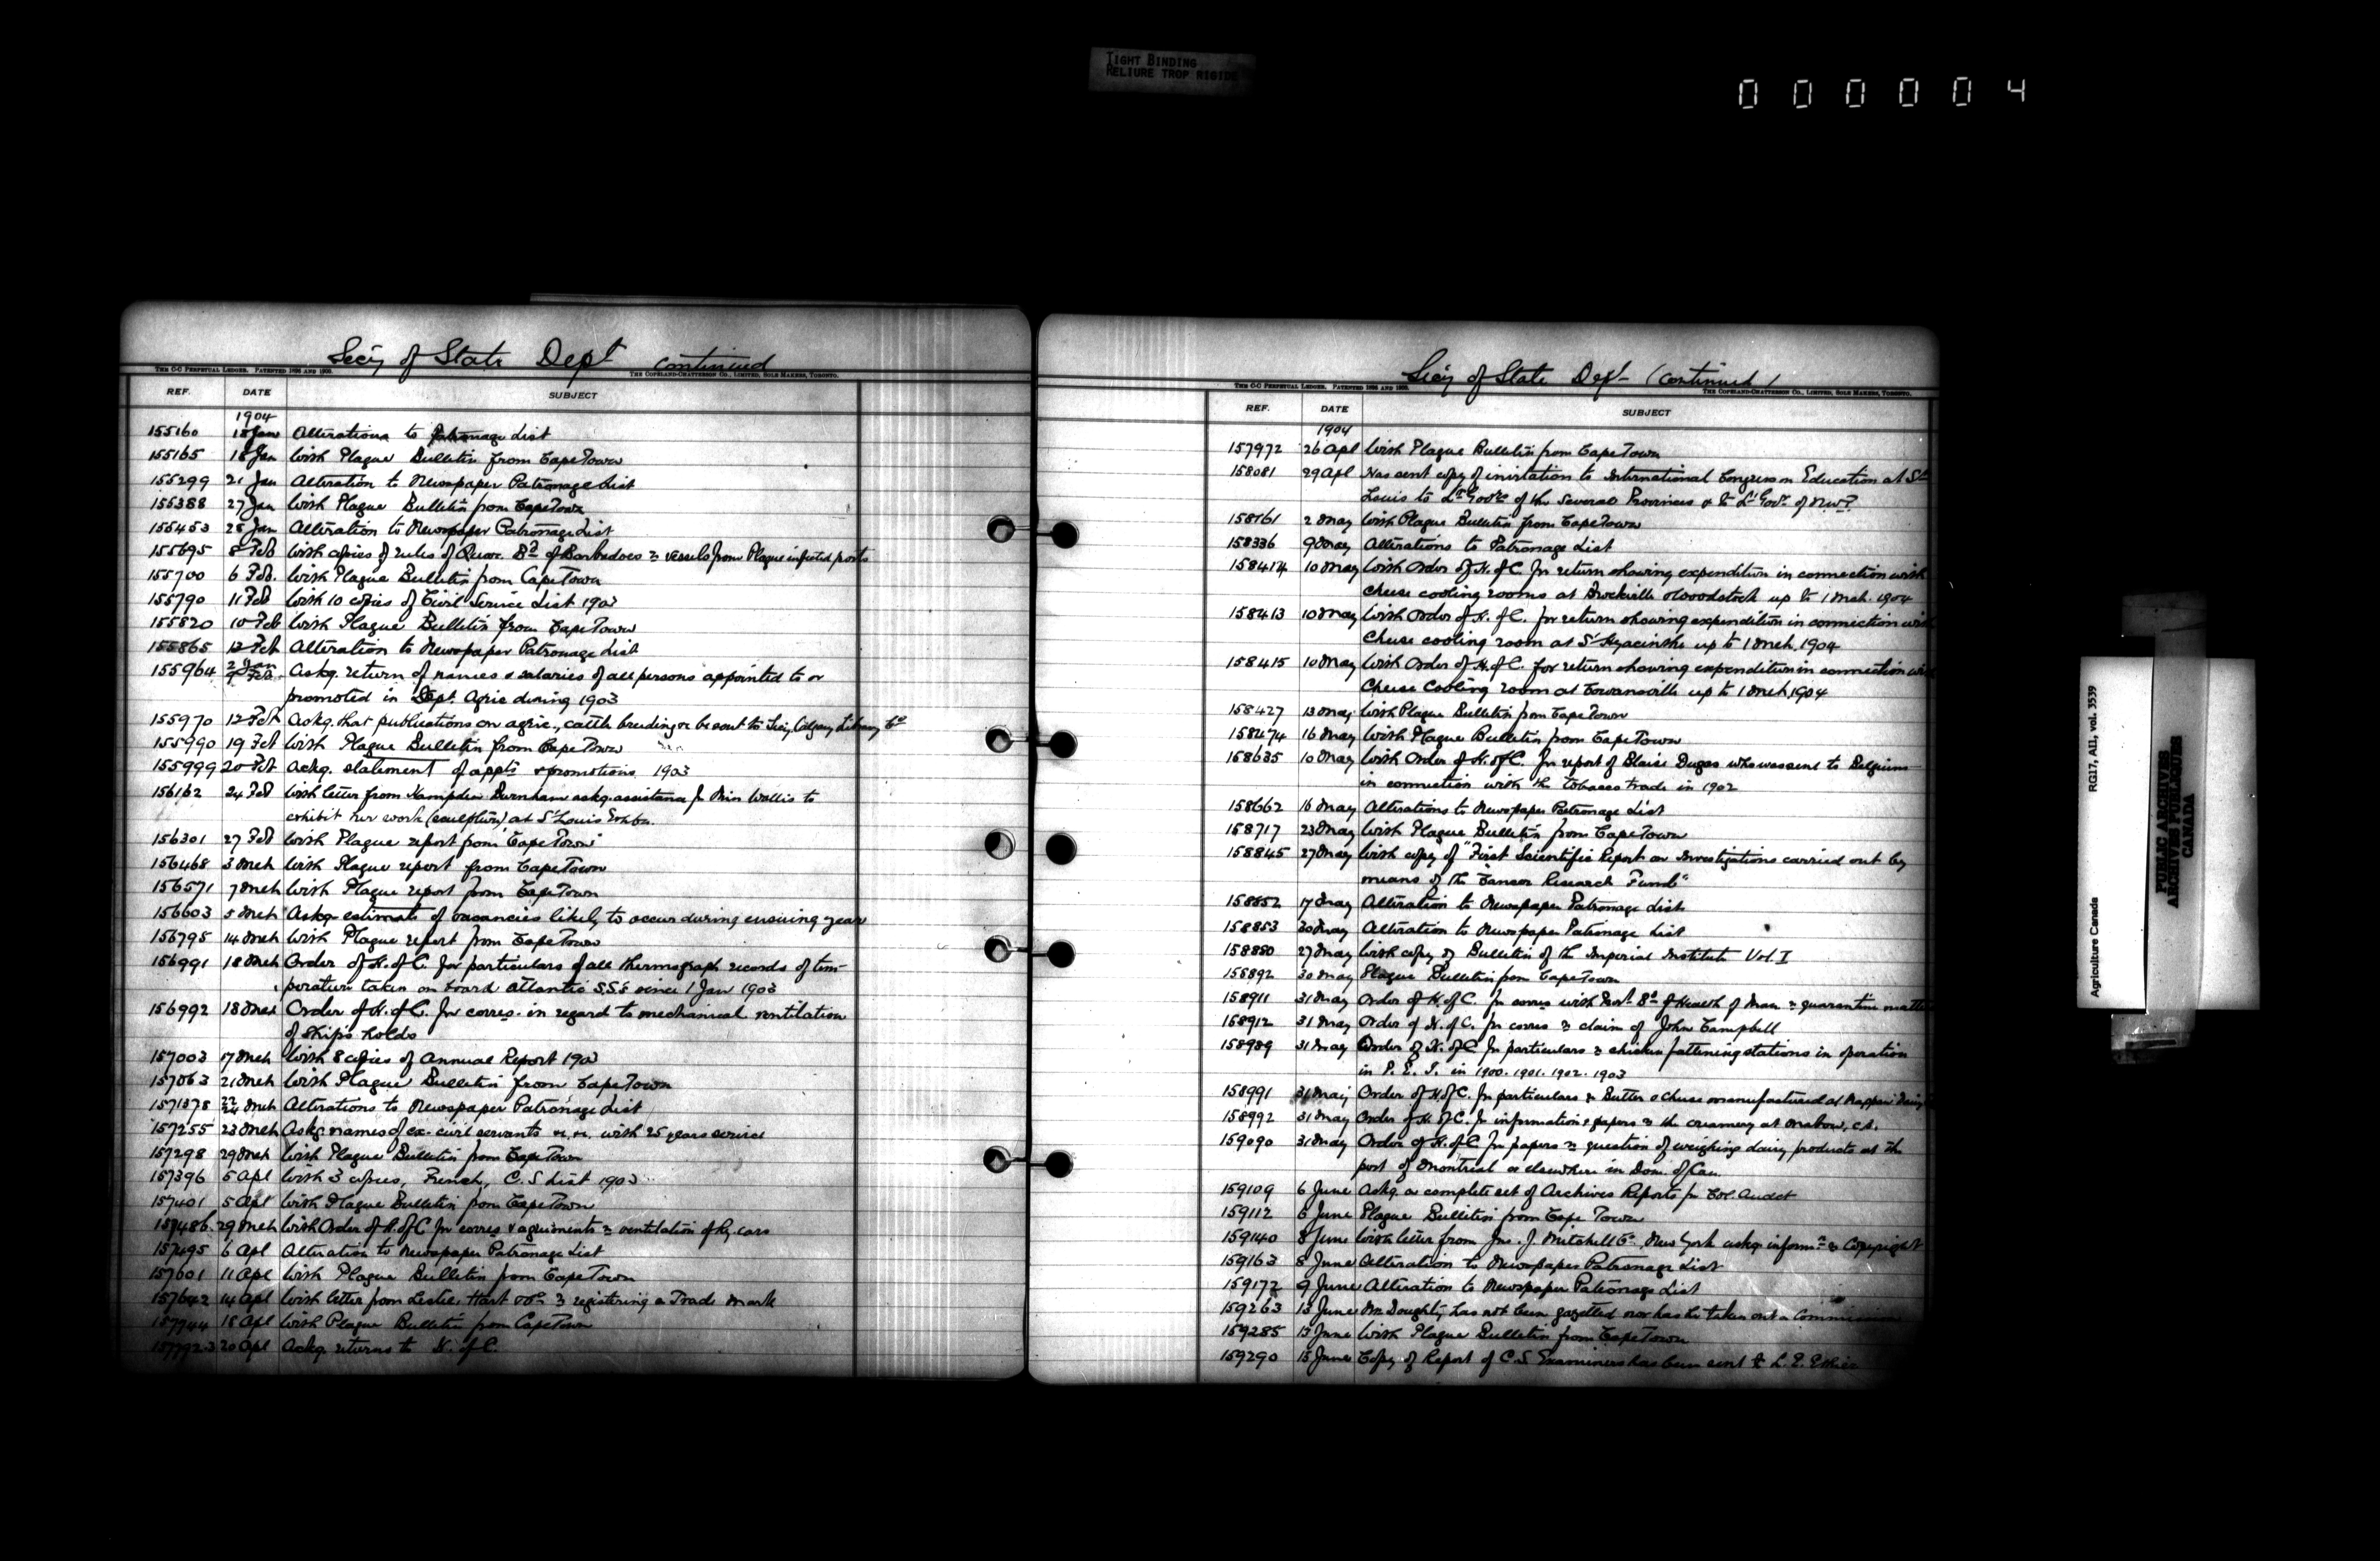 TIGHT BINDING
RELIURE TROP RIGIDE
000004
Secy of State Dept continued
THE C-C PERPETUAL LEDGER. PATENTED 1896 AND 1900.
THE COPELAND-CHATTERSON CO., LIMITED, SOLE MAKERS, TORONTO.
REF. DATE SUBJECT
1904
155160 18 Jan Alterations to Patronage List
155165 18 Jan With Plague Bulletin from Cape Town
155299 21 Jan Alteration to Newspaper Patronage List
155388 27 Jan With Plague Bulletin from Cape Town
155453 28 Jan Alteration to Newspaper Patronage List
155695 8 Feb With copies of rules of Quar. Bd of Barbadoes re vessels from Plague infected ports
155700 6 Feb. With Plague Bulletin from Cape Town
155790 11 Feb With 10 copies of Civil Service List 1903
155820 10 Feb With Plague Bulletin from Cape Town
155865 12 Feb Alteration to Newspaper Patronage List
155964 Askg. return of names & salaries of all persons appointed to or
promoted in Dept. Agric during 1903
155970 12 Feb Askg. that publications on agric., cattle breeding &c be sent to Secy Calgary Library Co
155990 19 Feb With Plague Bulletin from Cape Town
155999 20 Feb Askg. statement of appts & promotions 1903
156162 24 Feb With letter from Hampden Burnham askg. assistance for Miss Wallis to
exhibit her work (sculpture) at St Louis Exhbn.
156301 27 Feb With Plague report from Cape Town
156468 3 Mch With Plague report from Cape Town
156571 7 Mch With Plague report from Cape Town
156603 5 Mch Askg estimate of vacancies likely to occur during ensuing year
156795 14 Mch With Plague report from Cape Town
156991 18 Mch Order of H. of C. for particulars of all thermograph records of tem-
perature taken on board Atlantic S.S's since 1 Jan 1903
156992 18 Mch Order of H. of C. for corres. in regard to mechanical ventilation
of ships holds
157003 17 Mch With 8 copies of Annual Report 1903
157063 21 Mch With Plague Bulletin from Cape Town
22/24 Mch Alterations to Newspaper Patronage List
157255 23 Mch Askg names of ex-civil servants &c. &c. with 25 years service
157298 29 Mch With Plague Bulletin from Cape Town
157396 5 Apl With 3 copies, French, C.S List 1903
157401 5 Apl With Plague Bulletin from Cape Town
157486. 29 Mch With Order of H. of C for corres & agreements re ventilation of Ry. cars
157495 6 Apl Alteration to Newspaper Patronage List
157601 11 Apl With Plague Bulletin from Cape Town
157642 14 Apl With letter from Leslie, Hart & Co re registering a Trade Mark
157744 18 Apl With Plague Bulletin from Cape Town
20 Apl Askg. returns to H. of C.
Secy of State Dept (continued)
THE C-C PERPETUAL LEDGER. PATENTED 1896 AND 1900.
THE COPELAND-CHATTERSON CO., LIMITED, SOLE MAKERS, TORONTO.
REF. DATE SUBJECT
1904
157972 26 Apl With Plague Bulletin from Cape Town
158081 29 Apl Has sent copy of invitation to International Congress on Education at St
Louis to Lt Govrs of the several Provinces & to Lt Govr. of N.W.T.
158161 2 May With Plague Bulletin from Cape Town
158336 9 May Alterations to Patronage List
158414 10 May With Order of H. of C. for return showing expenditure in connection with
cheese cooling rooms at Brockville & Woodstock up to 1 Mch. 1904
158413 10 May With Order of H. of C. for return showing expenditure in connection with
cheese cooling room at St Hyacinthe up to 1 Mch. 1904
158415 10 May With Order of H. of C. for return showing expenditure in connection with
Cheese Cooling room at Cowansville up to 1 Mch. 1904
158427 13 May With Plague Bulletin from Cape Town
158474 16 May With Plague Bulletin from Cape Town
158635 10 May With Order of H. of C. for report of Blaise Dugas who was sent to Belgium
in connection with the tobacco trade in 1902
158662 16 May Alterations to Newspaper Patronage List
158717 23 May With Plague Bulletin from Cape Town
158845 27 May With copy of "First Scientific Report on Investigations carried out by
means of the Cancer Research Fund"
158852 17 May Alteration to Newspaper Patronage List
158853 30 May Alteration to Newspaper Patronage List
158880 27 May With copy of Bulletin of the Imperial Institute Vol. I
158892 30 May Plague Bulletin from Cape Town
158911 31 May Order of H. of C. for corres with Provl. Bd of Health of Man. re quarantine matters
158912 31 May Order of H. of C. for corres re claim of John Campbell
158989 31 May Order of H. of C. for particulars re chicken fattening stations in operation
in P. E. I. in 1900. 1901. 1902. 1903
158991 31 May Order of H. of C. for particulars re Butter & cheese manufactured at Nappan
158992 31 May Order of H. of C. for information & papers re the creamery at Mabou, C.B.
159090 31 May Order of H. of C. for papers re question of weighing dairy products at the
port of Montreal or elsewhere in Dom. of Can.
159109 6 June Askg. a complete set of Archives Reports for Col. Audet
159112 6 June Plague Bulletin from Cape Town
159140 8 June With letter from Jno. J. Mitchell Co. New York askg. informn re Copyright
159163 8 June Alteration to Newspaper Patronage List
159172 9 June Alteration to Newspaper Patronage List
159263 13 June Mr. Doughty has not been gazetted nor has he taken out a Commission
159285 13 June With Plague Bulletin from Cape Town
159290 15 June Copy of Report of C.S Examiners has been sent to L. E.
Agriculture Canada RG17, AII, vol. 3539
PUBLIC ARCHIVES
ARCHIVES PUBLIQUES
CANADA